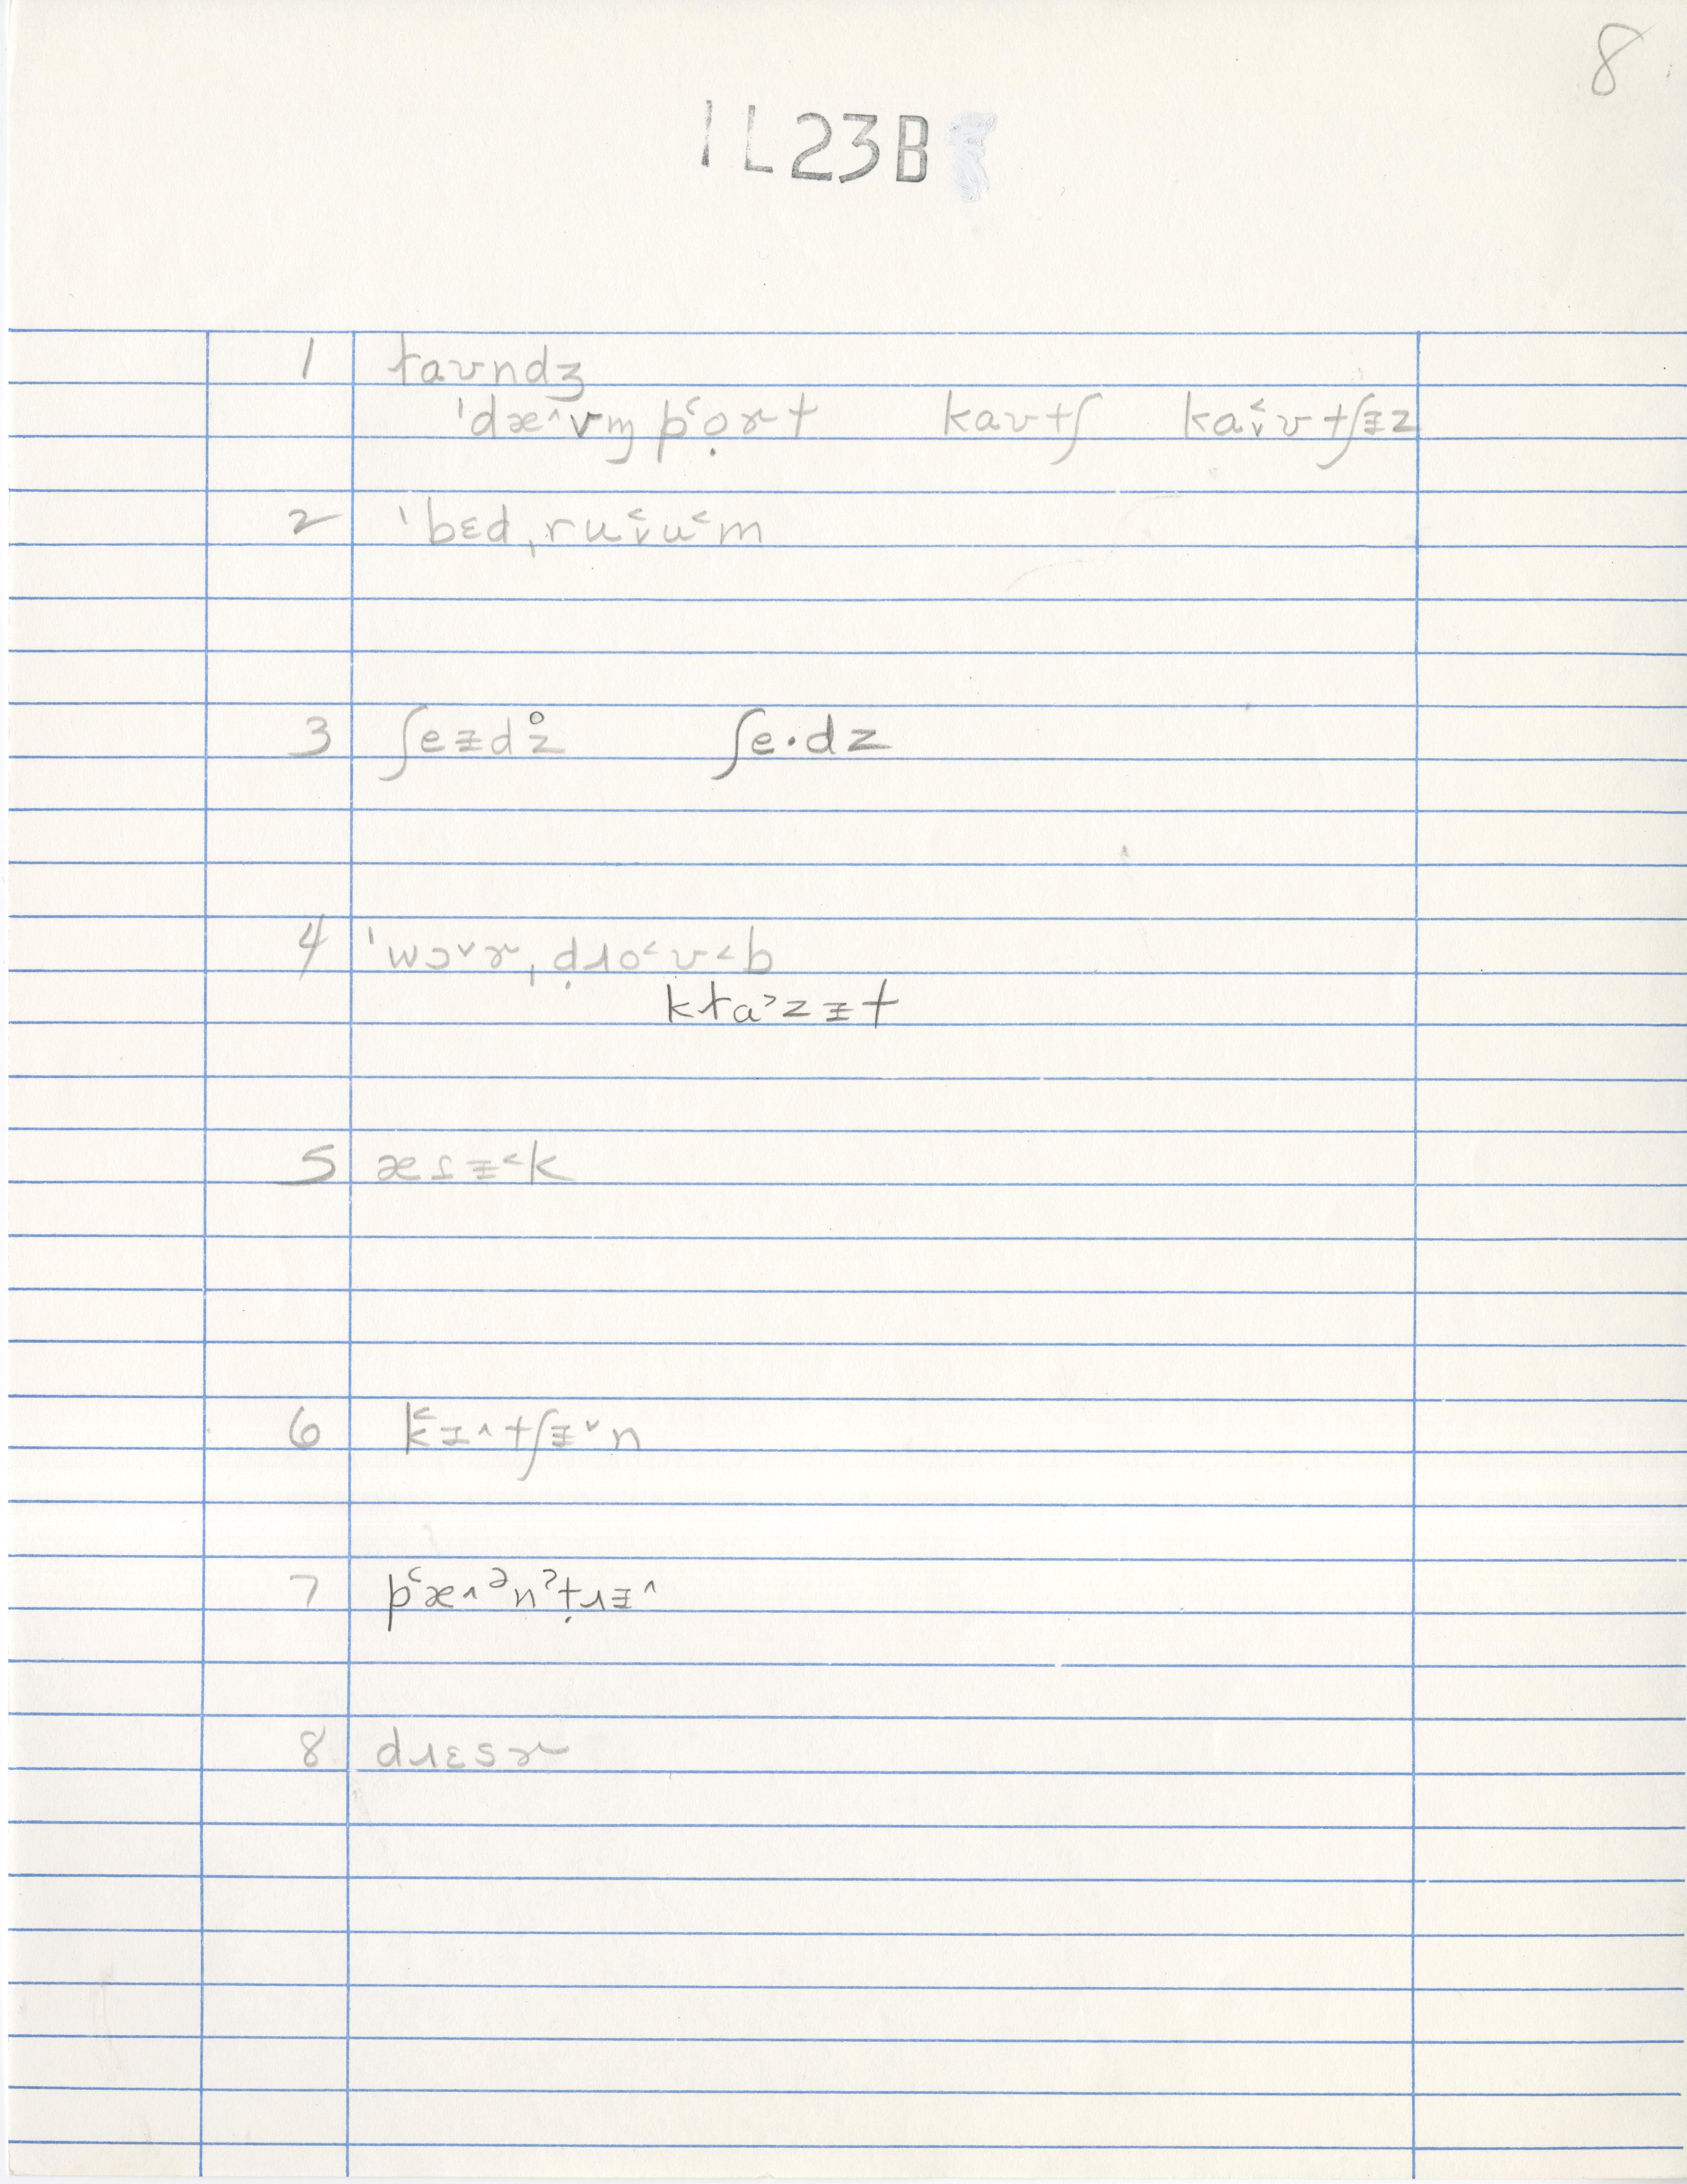 8
IL23B
1 ɫaʊndʒ
ˈdæ˄vm̩ p̔ọɚt kaʊtʃ ka˂˅ʊtʃɪ̵z
2 ˈbɛdˌru˂˅u˂m
3 ʃeɪ̵dz̊ ʃe·dz
4 ˈwɔ˅ɚˌḍɹo˂ʊ˂b
kɫa˃zɪ̵t
5 æsɪ̵˂k
6 k̔ɪ˄tʃɪ̵˅n
7 p̔æ˄ᵊnˀṭɹɪ̵˄
8 dɹɛsɚ